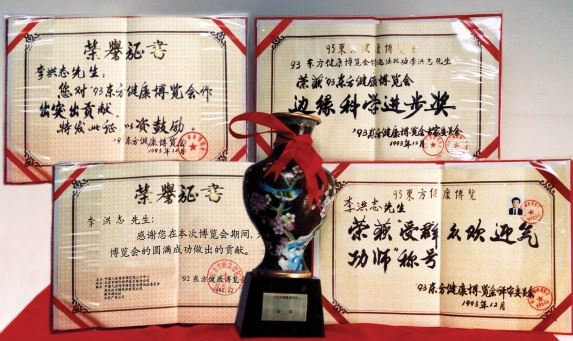 荣誉证书
李洪志先生:
您对'93东方健康博览会作
出突出贡献,
特发此证,以资鼓励。
'93东方健康博览会
1993年12月
93東方健康博覽會
荣获'93东方健康博览会
边缘科学进步奖
'93东方健康博览会专家委员会
1993年12月
荣誉证书
李洪志 先生:
感谢您在本次博览会期间,
博览会的圆满成功做出的贡献。
'92东方健康博览会
1992.12
93東方健康博覽
李洪志先生
荣获"受群众欢迎气
功师"称号
'93东方健康博览会评审委员会
1993年12月